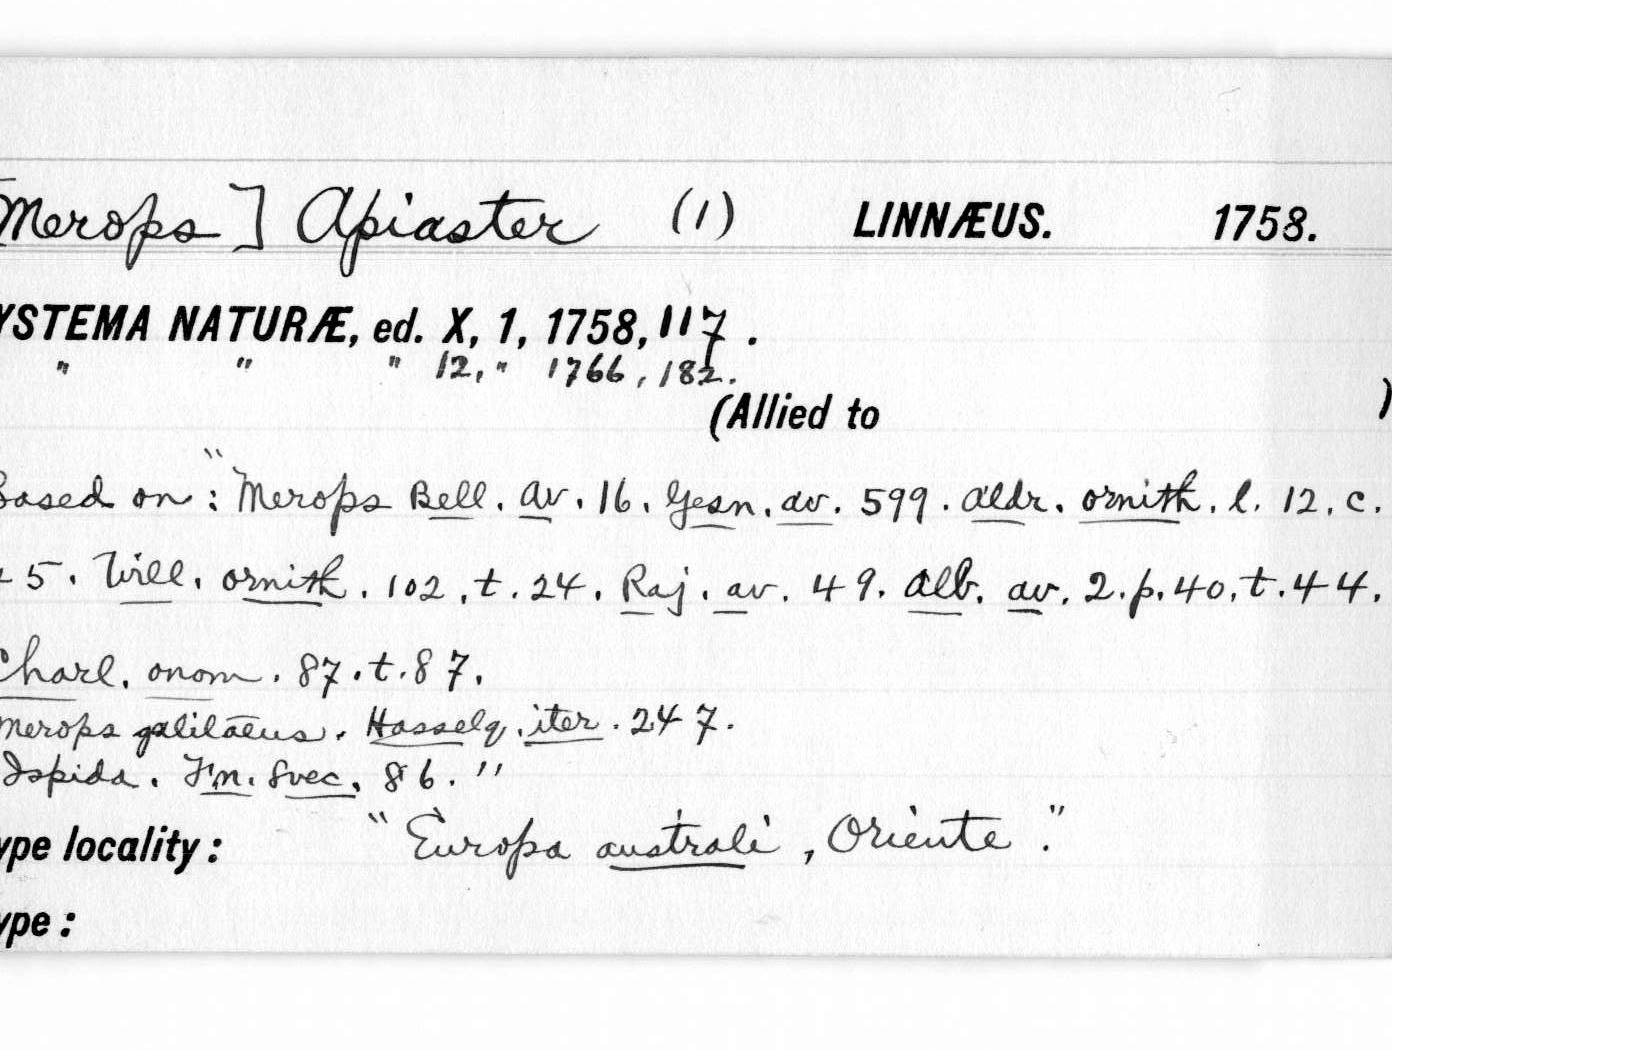 [Merops] Apiaster (1) LINNÆUS. 1758.
YSTEMA NATURÆ, ed. X, 1, 1758, 117.
" " " 12, " 1766, 182.
(Allied to )
Based on: "Merops Bell. av. 16. Gesn. av. 599. Aldr. ornith. l. 12. c.
45. Will. ornith. 102. t. 24. Raj. av. 49. Alb. av. 2. p. 40. t. 44.
Charl. onom. 87. t. 87.
Merops galilæus. Hasselq. iter. 247.
Ispida. Fn. Svec. 86."
ype locality: "Europa australi, Oriente."
ype: